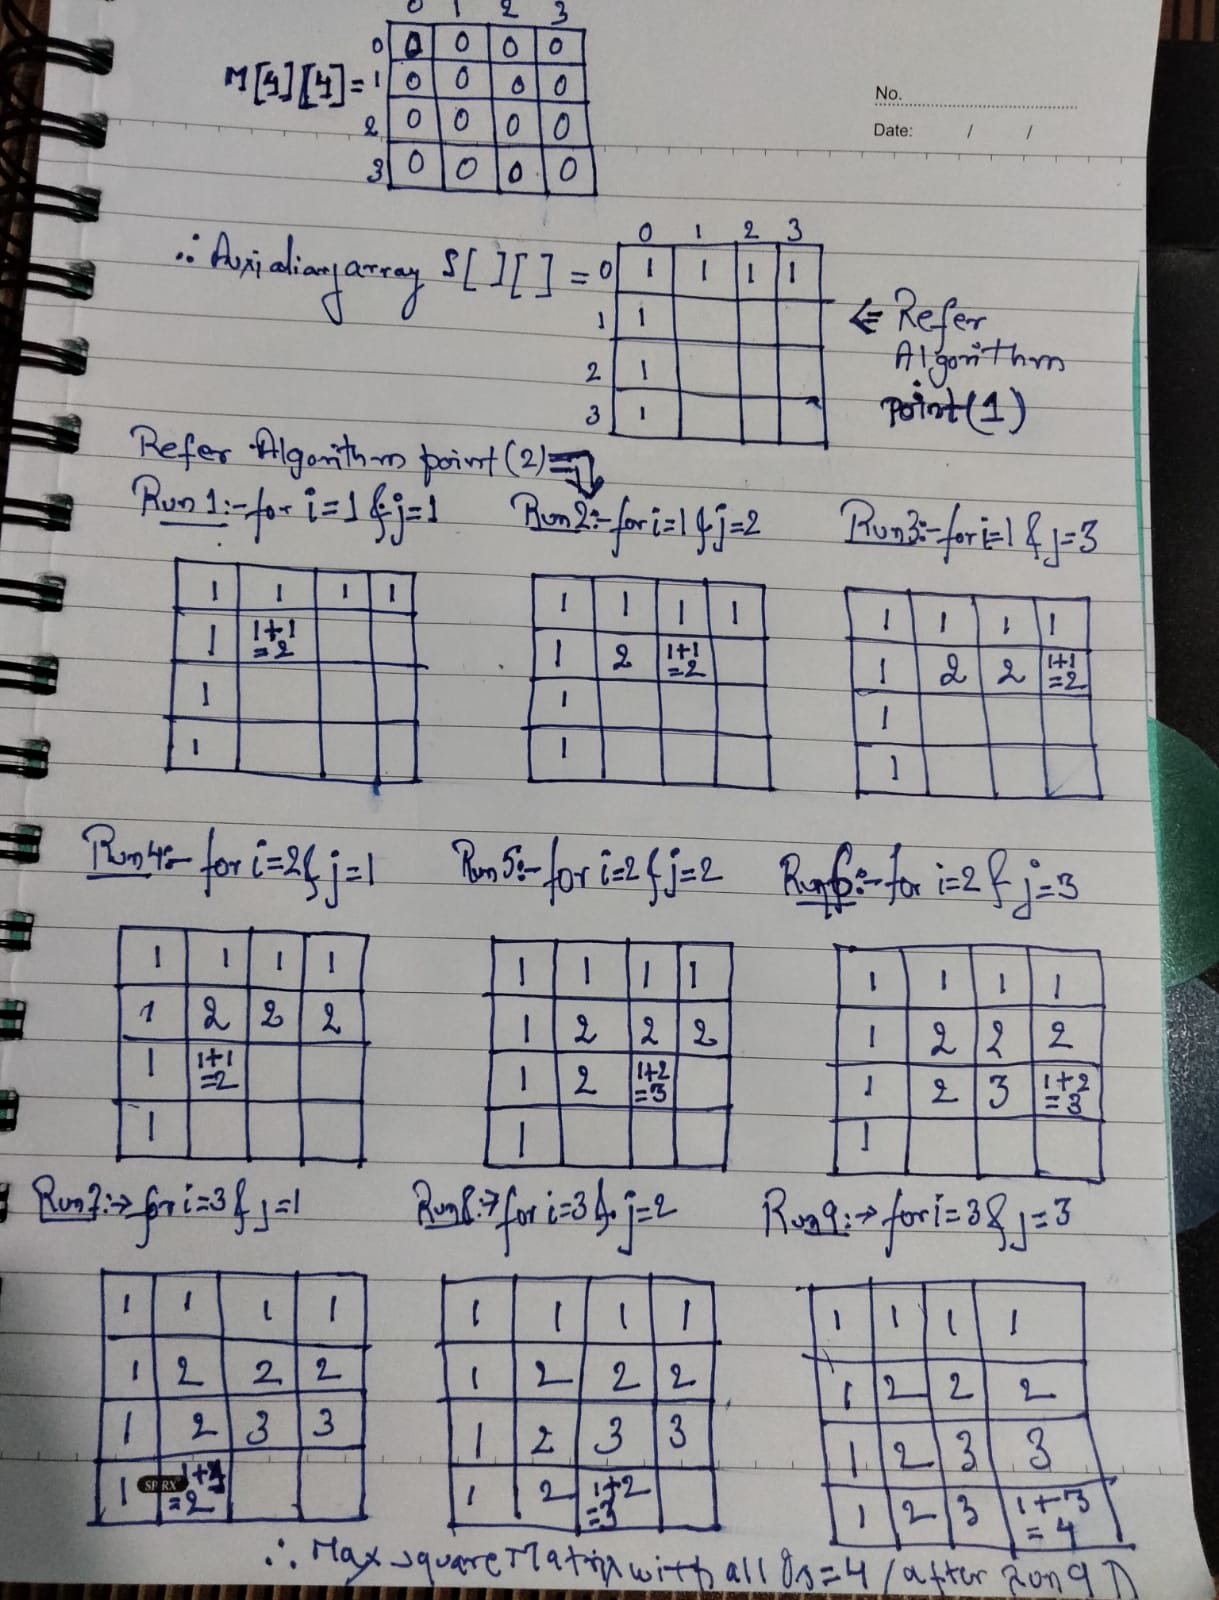 0 1 2 3
M[4][4]= 0 0 0 0 0
1 0 0 0 0
2 0 0 0 0
3 0 0 0 0
No.
Date: / /
0 1 2 3
∴ Auxialiary array S[][] = 0 1 1 1 1
1 1
2 1
3 1
⇐ Refer
Algorithm
point(1)
Refer Algorithm point(2)⇒
Run 1:- for i=1 & j=1
1 1 1 1
1 1+1
=2
1
1
Run2:- for i=1 & j=2
1 1 1 1
1 2 1+1
=2
1
1
Run3:- for i=1 & j=3
1 1 1 1
1 2 2 1+1
=2
1
1
Run4:- for i=2 & j=1
1 1 1 1
1 2 2 2
1 1+1
=2
1
Run5:- for i=2 & j=2
1 1 1 1
1 2 2 2
1 2 1+2
=3
1
Run6:- for i=2 & j=3
1 1 1 1
1 2 2 2
1 2 3 1+2
=3
1
Run7:→ for i=3 & j=1
1 1 1 1
1 2 2 2
1 2 3 3
1 1+1
=2
SP RX
Run8:→ for i=3 & j=2
1 1 1 1
1 2 2 2
1 2 3 3
1 2 1+2
=3
Run9:→ for i=3 & j=3
1 1 1 1
1 2 2 2
1 2 3 3
1 2 3 1+3
=4
∴ Max square Matrix with all 0s=4 (after Run 9)